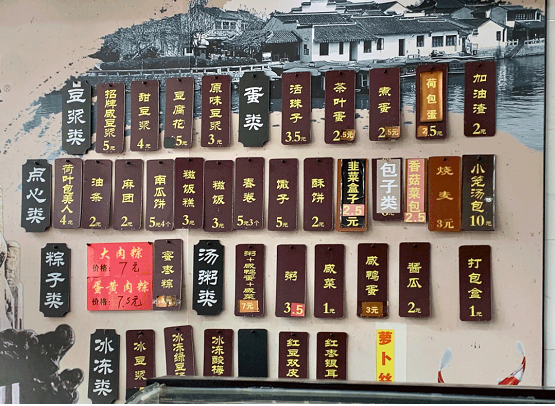 豆浆类
招牌咸豆浆 5元
甜豆浆 4元
豆腐花 5元
原味豆浆 3元
蛋类
活珠子 3.5元
茶叶蛋 2.5元
煮蛋 2.5元
荷包蛋 2.5元
加油渣 2元
点心类
荷叶包美人 4元
油条 2元
麻团 2元
南瓜饼 5元4个
糍饭糕 3元
糍饭 3元
春卷 5元3个
馓子 5元
酥饼 2元
韭菜盒子 2.5元
包子类
香菇菜包 2.5
烧麦 3元
小笼汤包 10元
粽子类
大肉粽
价格：7元
蛋黄肉粽
价格：7.5元
蜜枣粽
汤粥类
粥+咸鸭蛋+咸菜 7元
粥 3.5
咸菜 1元
咸鸭蛋 3元
酱瓜 2元
打包盒 1元
冰冻类
冰豆浆
冰冻绿豆
冰冻酸梅
红豆双皮
红枣银耳
萝卜丝